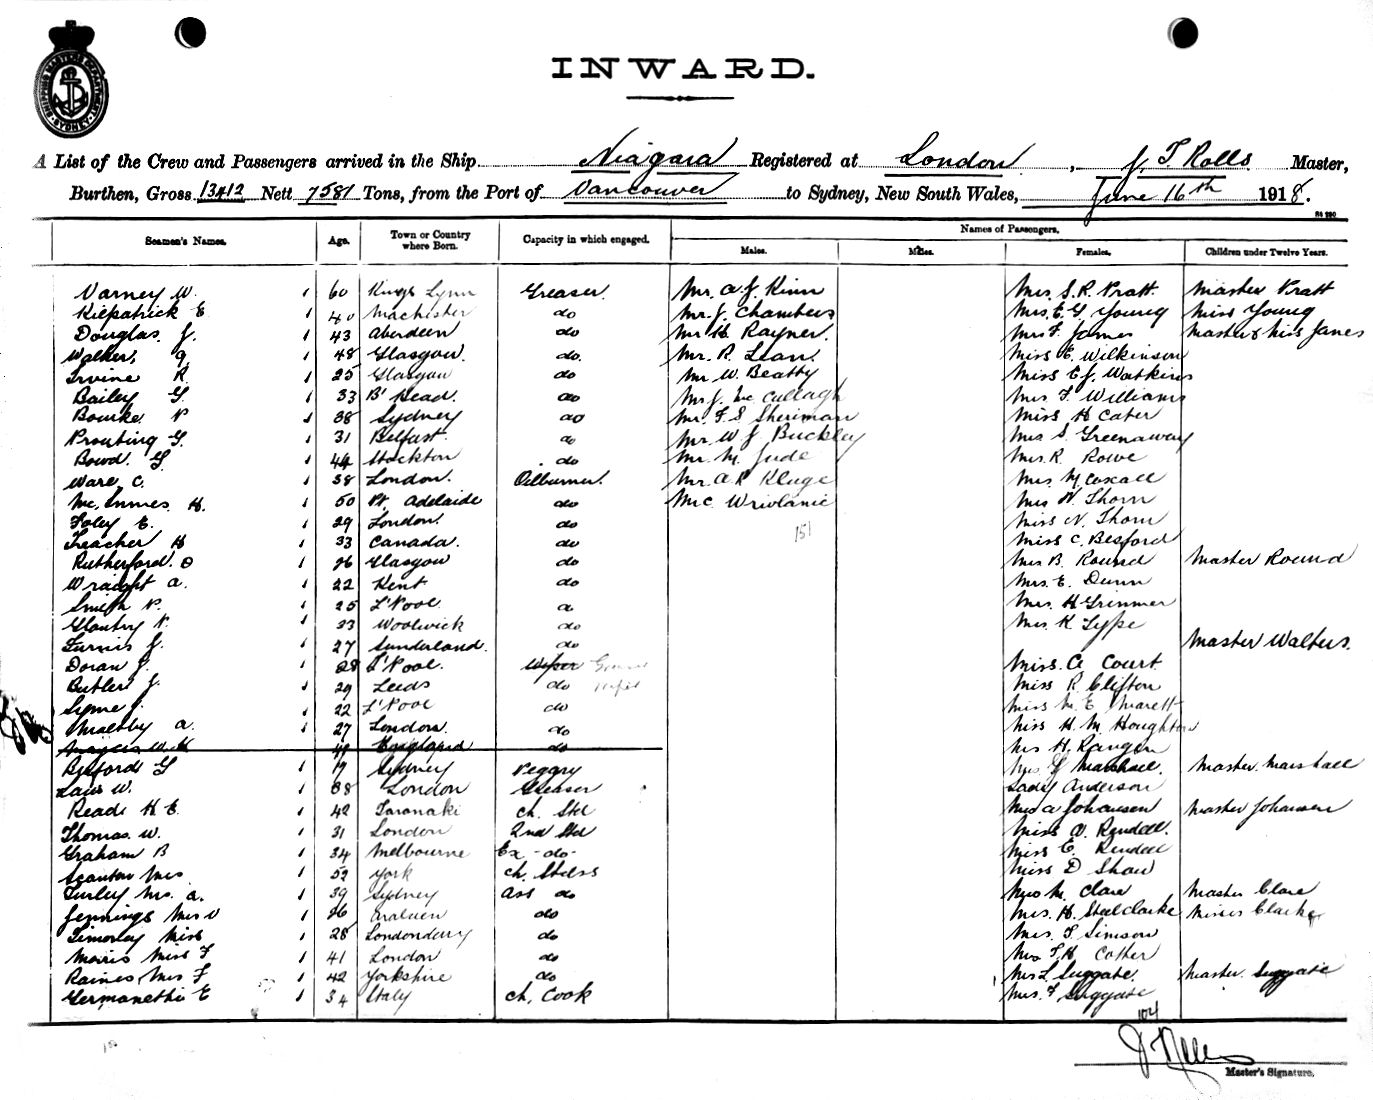 SHIPPING MASTERS DEPARTMENT SYDNEY
INWARD.
A List of the Crew and Passengers arrived in the Ship Niagara Registered at London, J. T. Rolls Master,
Burthen, Gross 13412 Nett 7581 Tons, from the Port of Vancouver to Sydney, New South Wales, June 16th 1918.
Seamen's Names. Age. Town or Country where Born. Capacity in which engaged. Names of Passengers.
Males. Males. Females. Children under Twelve Years.
Varney W. 1 60 Kings Lynn Greaser. Mr. A. J. Kinn Mrs. S. R. Pratt. Master Pratt
Kilpatrick E 1 40 Machister do Mr. J. Chambers Mrs. E. G. Young Miss Young
Douglas. J. 1 43 Aberdeen do Mr H. Rayner. Mrs F. James Master & Miss James
Walker, 1 48 Glasgow. do. Mr. R. Lean. Miss E. Wilkinson
Irvine R 1 25 Glasgow do Mr W. Beatty Miss E. J. Watkins
Bailey G 1 33 B'Head. do Mr J. McCullagh Mrs F. Williams
Bourke P 1 38 Sydney do Mr. F. S. Sheriman Miss H Cater
Prouting G. 1 31 Belfast. do Mr. W J Buckley Mrs S. Greenaway
Bowd. G 1 44 Stockton do Mr. M. Jude Mrs. R. Rowe
Ware, C. 1 38 London. Oilburner. Mr. A R Kluge Mrs. M Coxall
McInnes H. 1 50 Pt. Adelaide do Mr C Mrs N. Thorn
Foley E. 1 29 London. do 151 Miss N. Thorn
Treacher H 1 33 Canada. do Miss C. Besford
Rutherford. D 1 26 Glasgow do Mrs B. Round Master Round
Wraight A. 1 22 Kent do Mrs. E. Dunn
Smith P. 1 25 L'Pool. do Mrs. H Grimmer
1 23 Woolwich do Mrs. K.
Furnis J. 1 27 Sunderland. do Master Walters.
Doran J. 1 28 L'Pool. Wiper Miss. A Court.
Butler J. 1 29 Leeds do Miss R. Clifton
Syme J. 1 22 L'Pool do Miss M. E Marett
Maltby A. 1 27 London. do Miss H. M. Houghton
W. H 49 England do Mrs H. Ranger
Besford G 1 19 Sydney Peggy Mrs G Marshall. Master. Marshall
Laws W. 1 38 London Greaser Lady Anderson
Read H E. 1 42 Taranaki Ch. Std Mrs A Johansen Master Johansen
Thomas. W. 1 31 London 2nd Std Miss A. Rendell.
Graham B 1 34 Melbourne Ex -do- Miss E. Rendell
Scanton Mrs 1 52 York Ch. Stdss Miss D Shaw
Turley Mrs. A. 1 39 Sydney Ass do Mrs M. Clare Master Clare
Jennings Mrs V 1 26 Araluen do Mrs. H. Steel Clarke Misses Clarke
Timoney Miss 1 28 Londonderry do Mrs. F. Simson
Morris Miss F 1 41 London do Mrs F. H Cother
Raines, Mrs F 1 42 Yorkshire do Mrs L Suggate. Master. Suggate
Germanetti E 1 34 Italy Ch. Cook Mrs. F Suggate
104
Master's Signature.